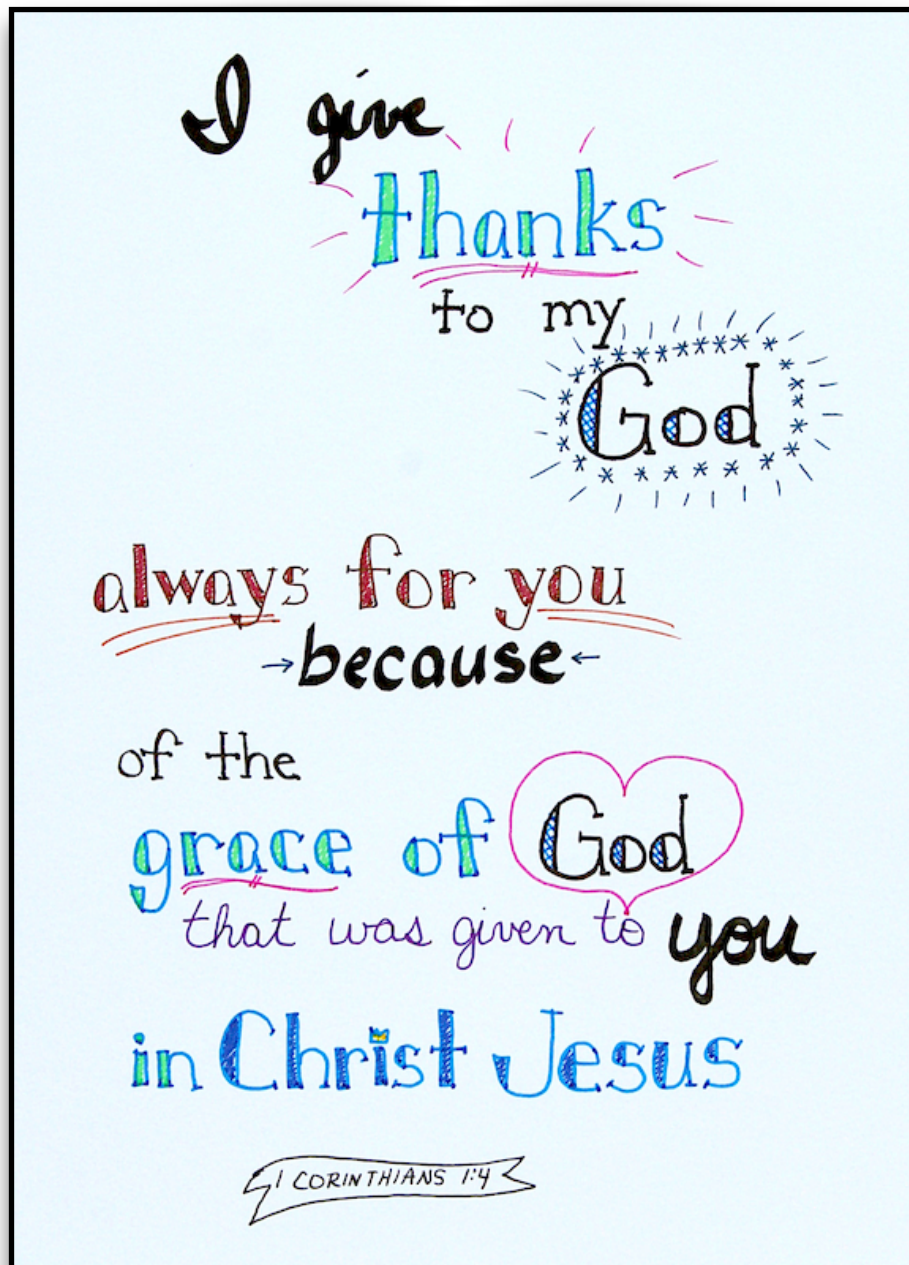 I give
thanks
to my
God
always for you
because
of the
grace of God
that was given to you
in Christ Jesus
1 CORINTHIANS 1:4